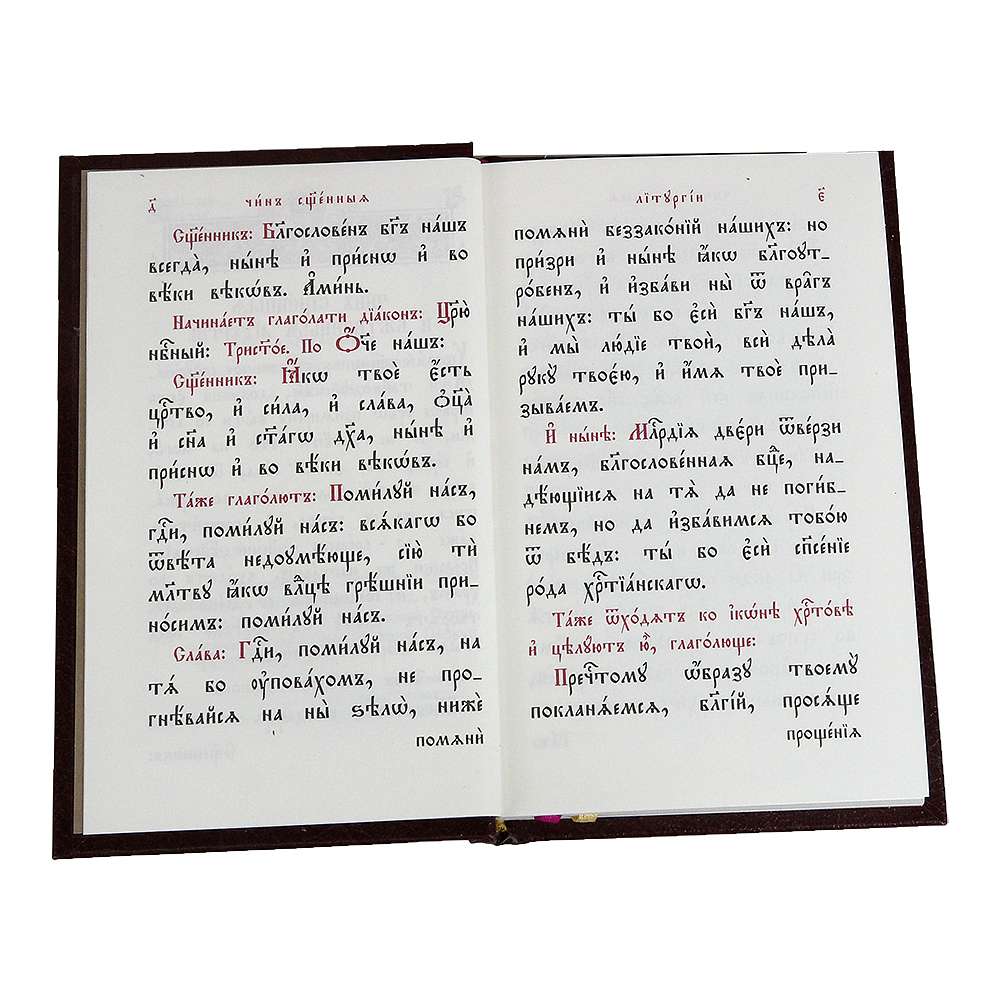 д҃
чи́нъ сщ҃е́нныѧ
Сщ҃е́нникъ: Бл҃гослове́нъ бг҃ъ на́шъ
всегда̀, ны́нѣ и҆ при́снѡ и҆ во
вѣ́ки вѣкѡ́въ. А҆ми́нь.
Начина́етъ глаго́лати дїа́конъ: Цр҃ю̀
нбⷭ҇ный: Трист҃о́е. По Ѻ҆́че на́шъ:
Сщ҃е́нникъ: Ꙗ҆́кѡ твоѐ є҆́сть
црⷭ҇тво, и҆ си́ла, и҆ сла́ва, ѻ҆ц҃а̀
и҆ сн҃а и҆ ст҃а́гѡ дх҃а, ны́нѣ и҆
при́снѡ и҆ во вѣ́ки вѣкѡ́въ.
Та́же глаго́лютъ: Поми́лꙋй на́съ,
гдⷭ҇и, поми́лꙋй на́съ: всѧ́кагѡ бо
ѿвѣ́та недоꙋмѣ́юще, сїю̀ тѝ
мл҃твꙋ ꙗ҆́кѡ влⷣцѣ грѣ́шнїи при_
но́симъ: поми́лꙋй на́съ.
Сла́ва: Гдⷭ҇и, поми́лꙋй на́съ, на
тѧ́ бо ᲂу҆пова́хомъ, не про_
гнѣ́вайсѧ на ны̀ ѕѣлѡ̀, нижѐ
помѧнѝ
лїтꙋргі́и
є҃
помѧнѝ беззако́нїй на́шихъ: но
при́зри и҆ ны́нѣ ꙗ҆́кѡ бл҃гоꙋт_
ро́бенъ, и҆ и҆зба́ви ны̀ ѿ вра̑гъ
на́шихъ: ты́ бо є҆сѝ бг҃ъ на́шъ,
и҆ мы̀ лю́дїе твоѝ, всѝ дѣ́ла
рꙋкꙋ̀ твоє́ю, и҆ и҆́мѧ твоѐ при_
зыва́емъ.
И҆ ны́нѣ: Млⷭ҇рдїѧ две́ри ѿве́рзи
на́мъ, бл҃гослове́ннаѧ бцⷣе, на_
дѣ́ющїисѧ на тѧ̀ да не поги́б_
немъ, но да и҆зба́вимсѧ тобо́ю
ѿ бѣ́дъ: ты́ бо є҆сѝ сп҃се́нїе
ро́да хрⷭ҇тїа́нскагѡ.
Та́же ѿхо́дѧтъ ко і҆кѡ́нѣ хрⷭ҇то́вѣ
и҆ цѣлꙋ́ютъ ю҆̀, глаго́люще:
Пречⷭ҇томꙋ ѡ҆́бразꙋ твоемꙋ̀
покланѧ́емсѧ, бл҃гі́й, просѧ́ще
проще́нїѧ